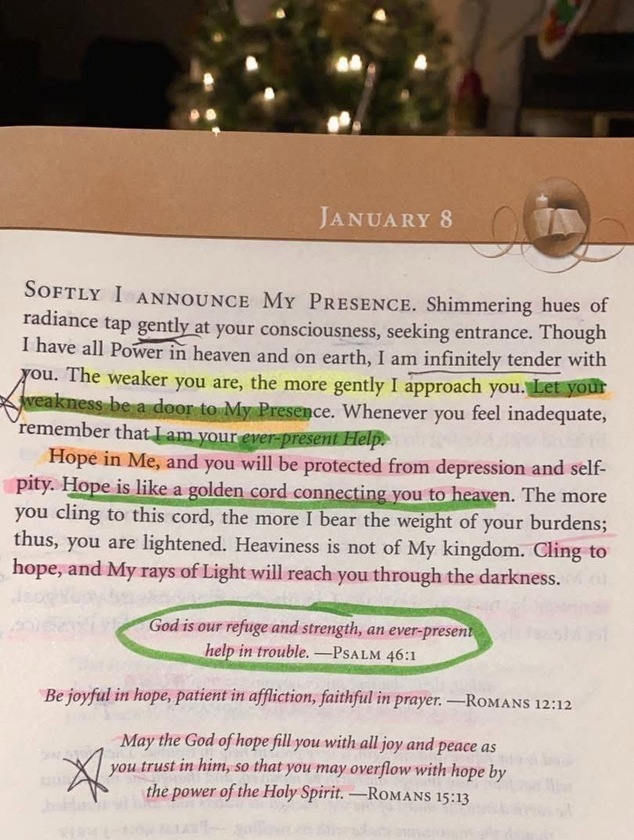 JANUARY 8
SOFTLY I ANNOUNCE MY PRESENCE. Shimmering hues of
radiance tap gently at your consciousness, seeking entrance. Though
I have all Power in heaven and on earth, I am infinitely tender with
you. The weaker you are, the more gently I approach you. Let your
weakness be a door to My Presence. Whenever you feel inadequate,
remember that I am your ever-present Help.
Hope in Me, and you will be protected from depression and self-
pity. Hope is like a golden cord connecting you to heaven. The more
you cling to this cord, the more I bear the weight of your burdens;
thus, you are lightened. Heaviness is not of My kingdom. Cling to
hope, and My rays of Light will reach you through the darkness.
God is our refuge and strength, an ever-present
help in trouble. —PSALM 46:1
Be joyful in hope, patient in affliction, faithful in prayer. —ROMANS 12:12
May the God of hope fill you with all joy and peace as
you trust in him, so that you may overflow with hope by
the power of the Holy Spirit. —ROMANS 15:13